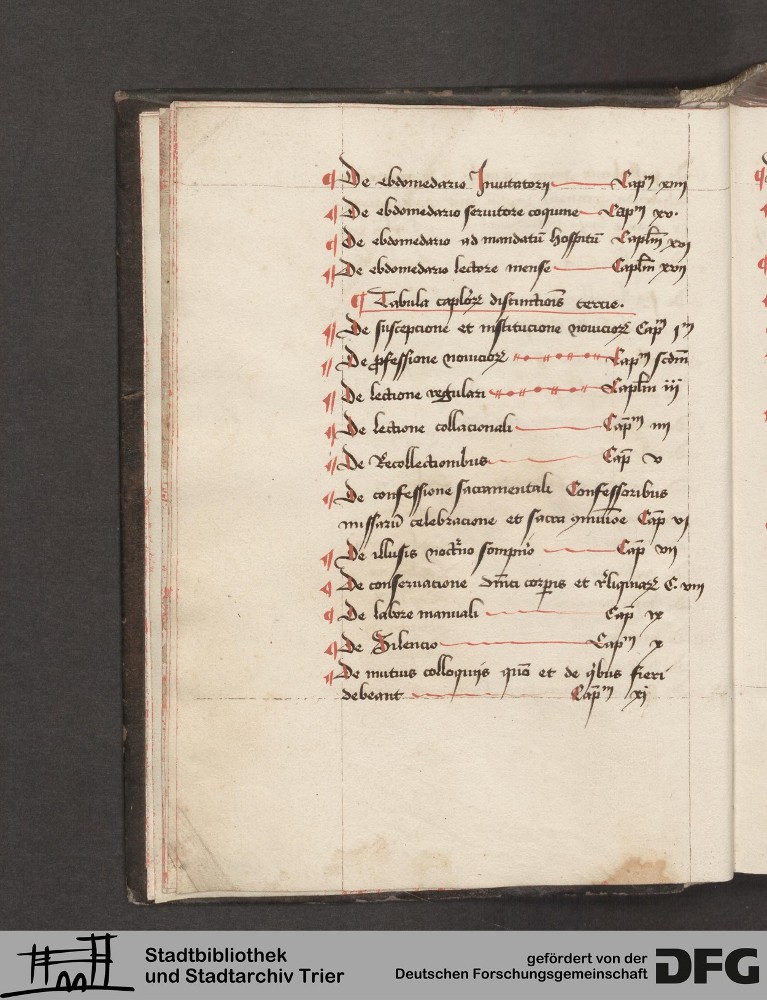 ¶ De ebdomedario Inuitatorij Capᵐ xiiij
¶ De ebdomedario seruitore coquine Capᵐ xv.
¶ De ebdomedario ad mandatū hospitū Caplm̄ xvj
¶ De ebdomedario lectore mense Caplm̄ xvij
¶ Tabula caplo͛ꝝ distinctiōis tercie.
¶ De susceptione et institucione nouicioꝝ Cap̄ jᵐ
¶ De ꝓfessione nouicioꝝ Capᵐ scd̄m
¶ De lectione regulari Caplm̄ iij
¶ De lectione collacionali Cap̄ᵐ iiij
¶ De Recollectionibus Cap̄ v
¶ De confessione sacramentali Confessoribus
missarū celebracione et sacra ꝯmuniōe Cap̄ vj
¶ De illusis noct͛no sompno Cap̄ vij
¶ De conseruacione dn̄ici corꝑis et reliquiaꝝ C. viij
¶ De labore manuali Cap̄ ix
¶ De Silencio Capᵐ x
¶ De mutuis colloquijs quō et de qⁱbus fieri
debeant Cap̄ᵐ xj
Stadtbibliothek
und Stadtarchiv Trier
gefördert von der
Deutschen Forschungsgemeinschaft
DFG